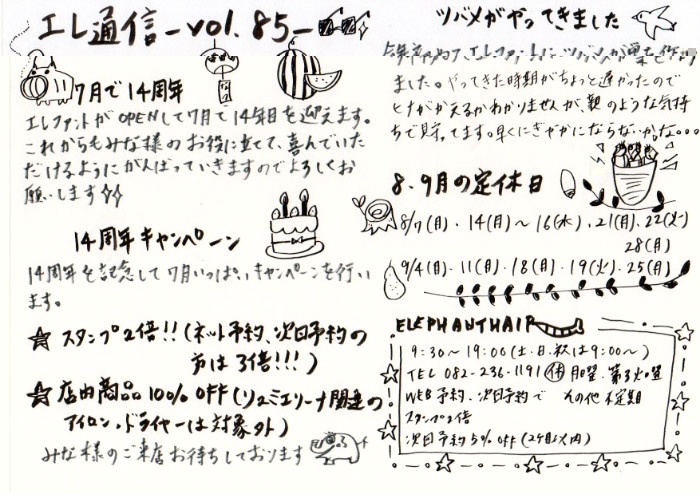 エレ通信 -vol.85-
7月で14周年
エレファントがOPENして7月で14年目を迎えます。
これからもみな様のお役に立てて、喜んでいた
だけるようにがんばっていきますのでよろしくお
願いします
14周年キャンペーン
14周年を記念して7月いっぱいキャンペーンを行い
ます。
☆ スタンプ2倍!!(ネット予約、次回予約の
方は3倍!!!)
☆ 店内商品100% OFF(リュミエリーナ関連の
アイロン、ドライヤーは対象外)
みな様のご来店お待ちしております
ツバメがやってきました
ました。やってきた時期がちょっと遅かったので
ヒナがかえるかわかりませんが、親のような気持
ちで見てます。早くにぎやかにならないかな...
8.9月の定休日
8/7(月)、14(月)~16(水)、21(月)、22(火)
28(月)
9/4(月)、11(月)、18(月)、19(火)、25(月)
ELEPHANTHAIR
9:30~19:00(土、日、祝は9:00~)
TEL 082-236-1191 休 月曜、第3火曜
WEB予約、次回予約で その他不定期
スタンプ2倍
次回予約5%OFF(2ヶ月以内)